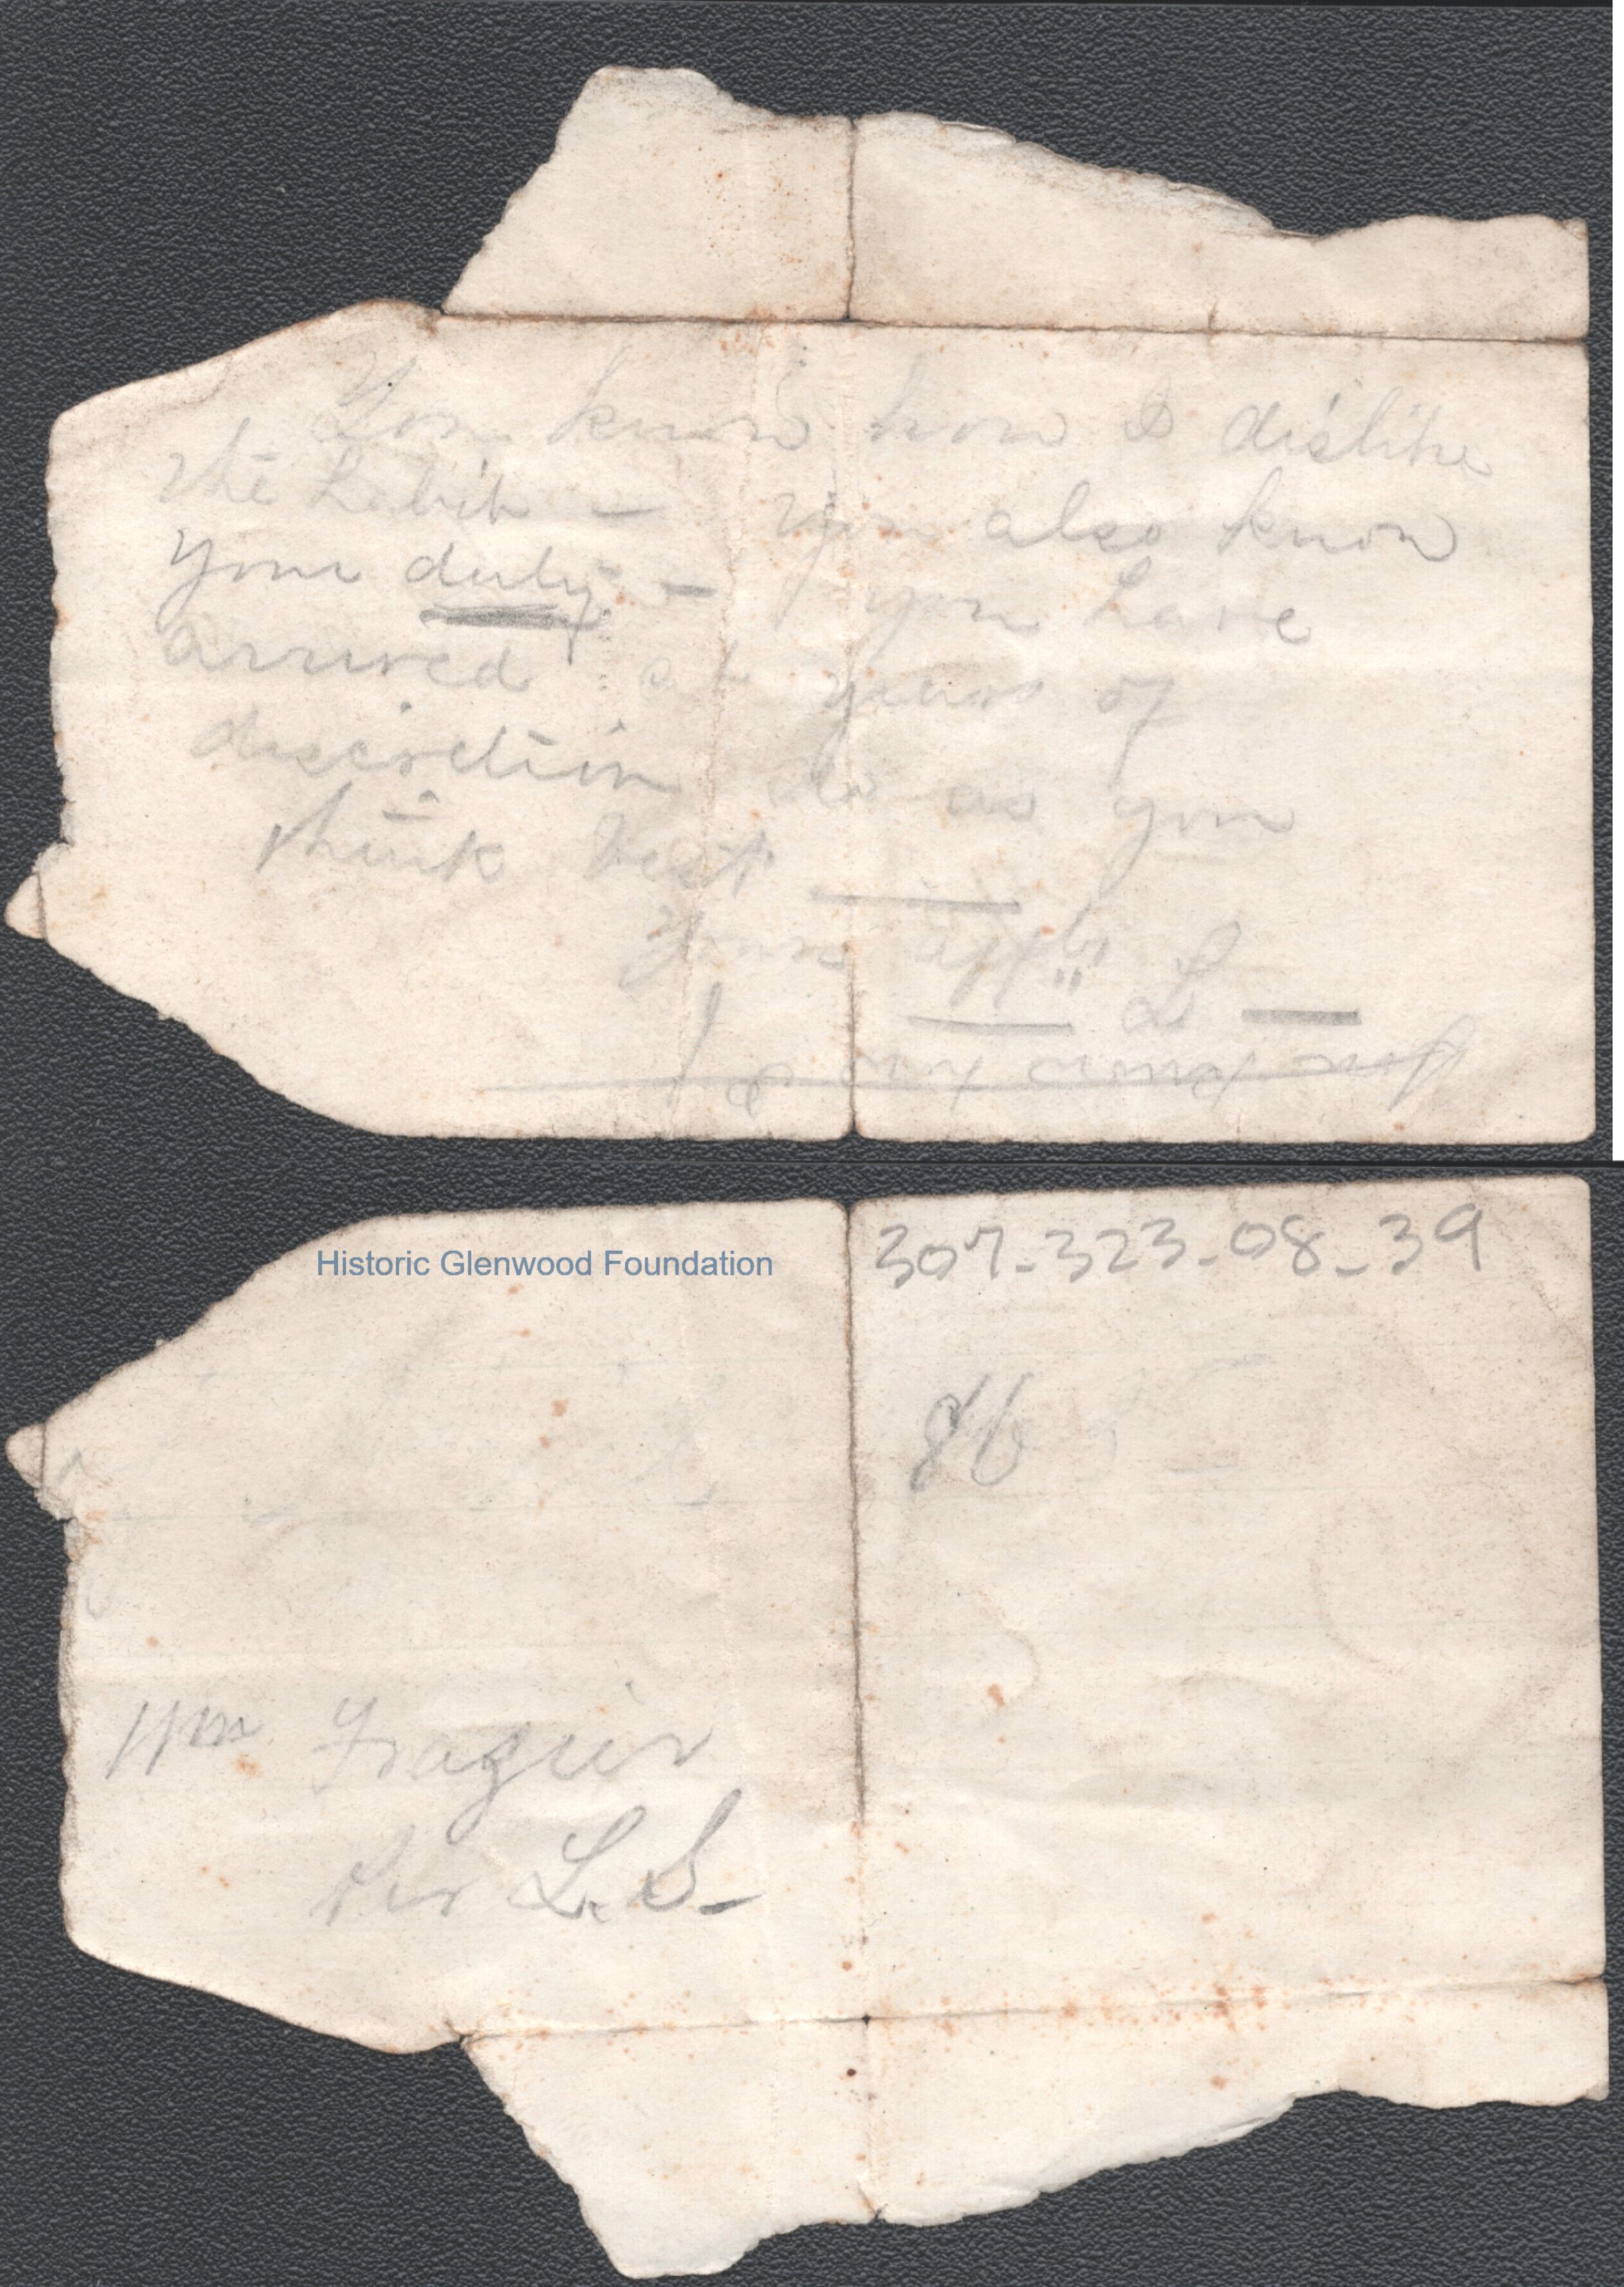 You know how I dislike
the habit – you also know
your duty – you have
arrived at years of
discretion do as you
think best —
Yours affly
L —
Historic Glenwood Foundation
307-323-08-39
Wm Frazier
Per L. S-